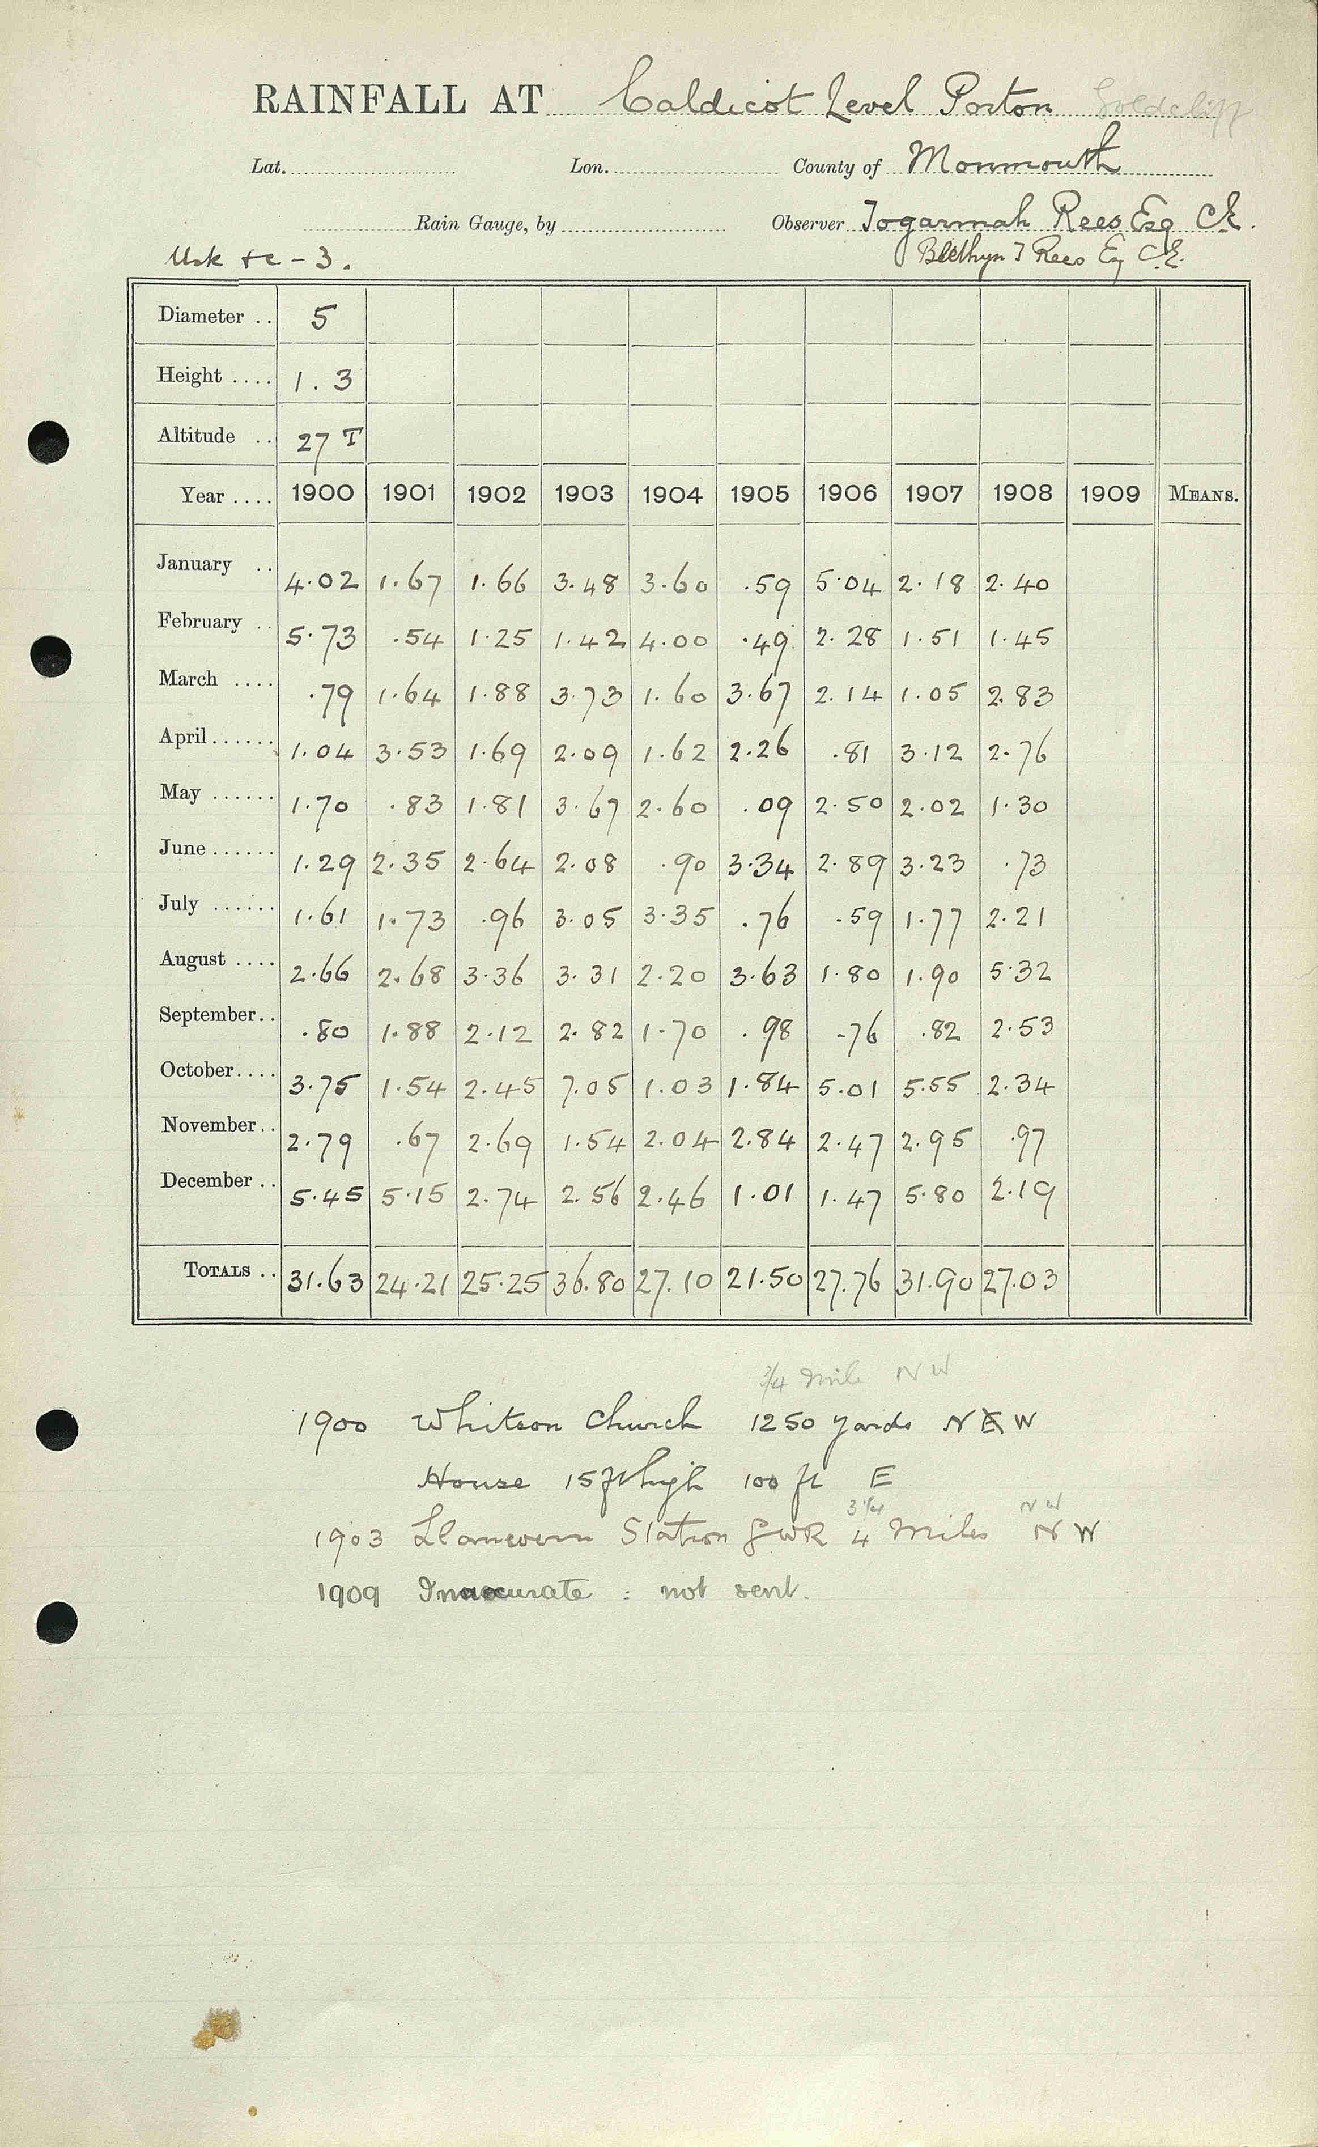 RAINFALL AT Caldicot Level Porton Goldcliff
Lat. Lon. County of Monmouth
Rain Gauge, by Observer Togarmah Rees Esq C.E.
Usk &c - 3. Blethyn T Rees Esq C.E.
Diameter .. 5
Height .... 1.3
Altitude .. 27 T
Year .... 1900 1901 1902 1903 1904 1905 1906 1907 1908 1909 MEANS.
January .. 4.02 1.67 1.66 3.48 3.60 .59 5.04 2.18 2.40
February .. 5.73 .54 1.25 1.42 4.00 .49 2.28 1.51 1.45
March .... .79 1.64 1.88 3.73 1.60 3.67 2.14 1.05 2.83
April...... 1.04 3.53 1.69 2.09 1.62 2.26 .81 3.12 2.76
May ...... 1.70 .83 1.81 3.67 2.60 .09 2.50 2.02 1.30
June...... 1.29 2.35 2.64 2.08 .90 3.34 2.89 3.23 .73
July ...... 1.61 1.73 .96 3.05 3.35 .76 .59 1.77 2.21
August .... 2.66 2.68 3.36 3.31 2.20 3.63 1.80 1.90 5.32
September.. .80 1.88 2.12 2.82 1.70 .98 .76 .82 2.53
October.... 3.75 1.54 2.45 7.05 1.03 1.84 5.01 5.55 2.34
November.. 2.79 .67 2.69 1.54 2.04 2.84 2.47 2.95 .97
December .. 5.45 5.15 2.74 2.56 2.46 1.01 1.47 5.80 2.19
TOTALS .. 31.63 24.21 25.25 36.80 27.10 21.50 27.76 31.90 27.03
3/4 mile NW
1900 Whitson Church 1250 yards N E W
House 15 ft high 100 ft E
3 1/4 NW
1903 Llanwern Station GWR 4 Miles N W
1909 Inaccurate : not sent.